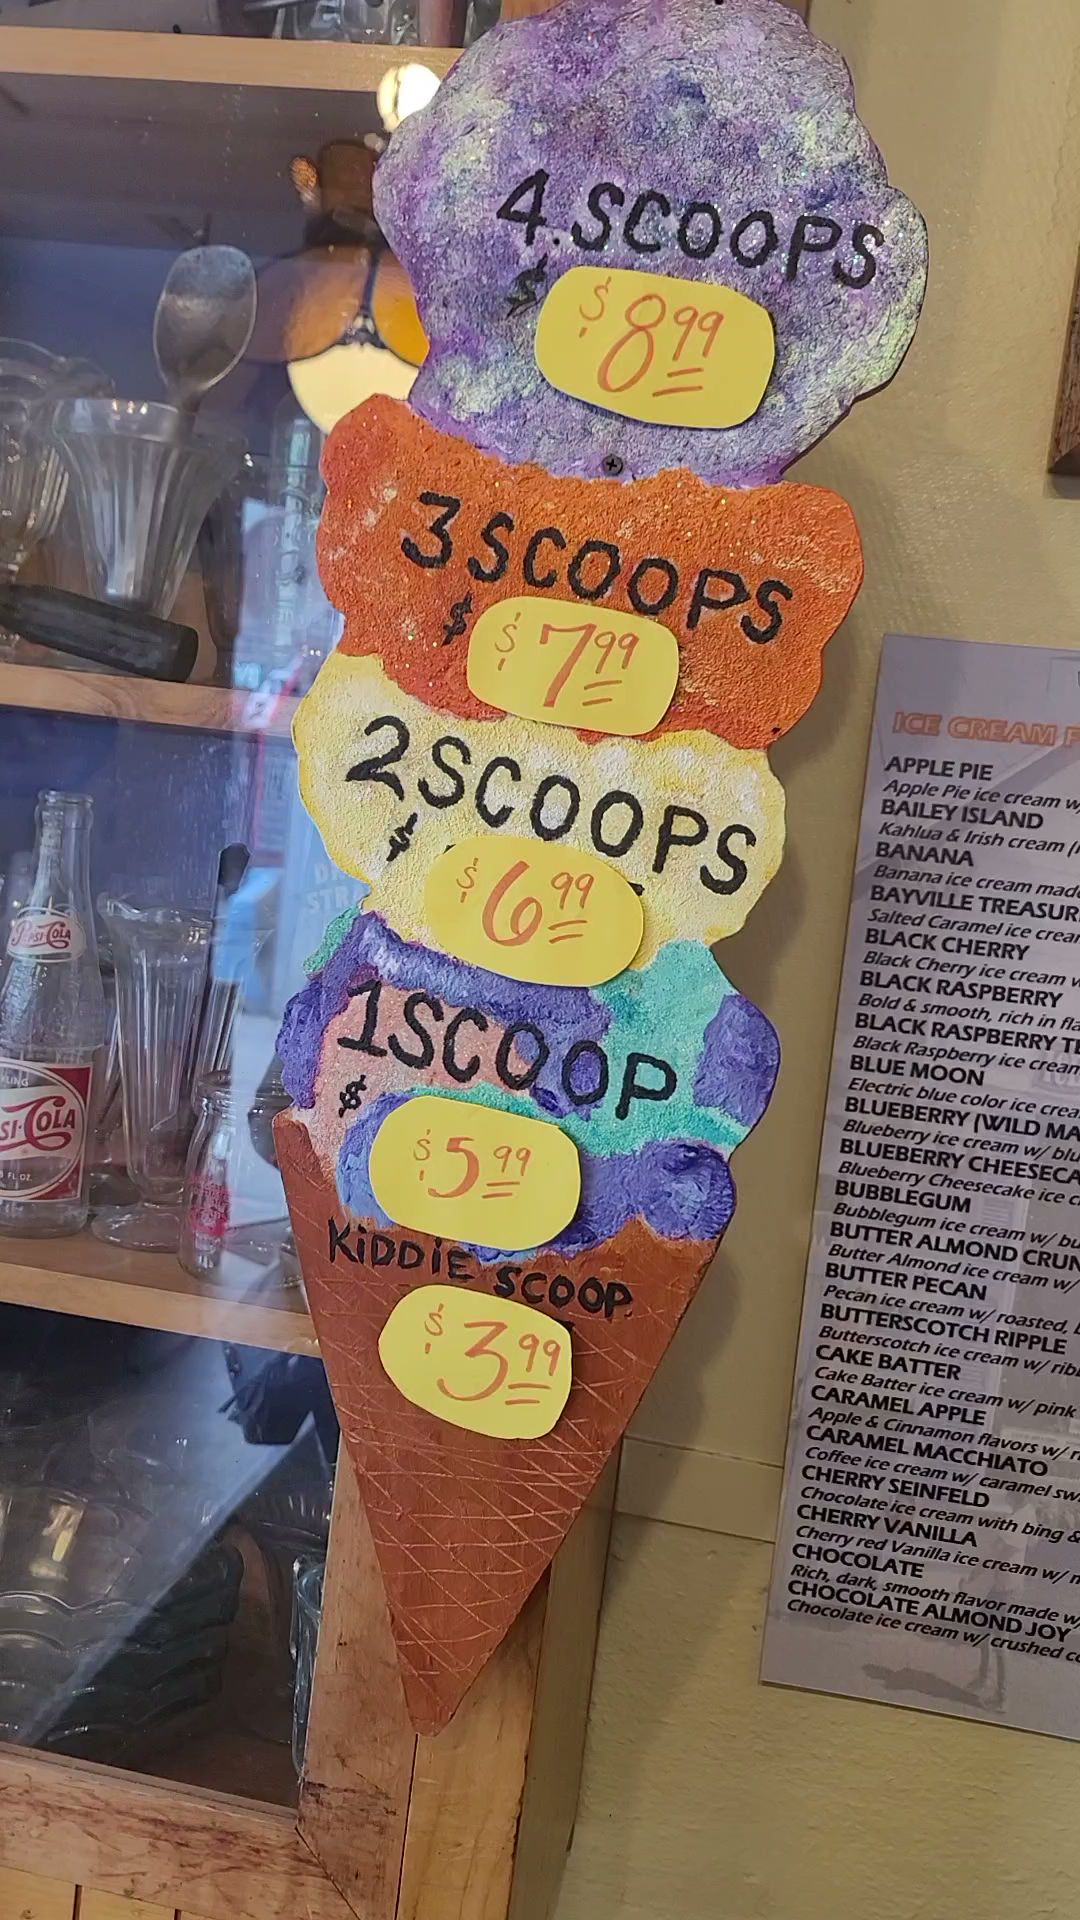 4 SCOOPS
$
$8.99
3 SCOOPS
$
$7.99
2 SCOOPS
$
$6.99
1 SCOOP
$
$5.99
KiDDiE SCOOP
$3.99
PEPSI-COLA
SI-COLA
FL. OZ.
ICE CREAM F
APPLE PIE
Apple Pie ice cream w/
BAILEY ISLAND
Kahlua & Irish cream
BANANA
Banana ice cream made
BAYVILLE TREASUR
Salted Caramel ice cream
BLACK CHERRY
Black Cherry ice cream w
BLACK RASPBERRY
Bold & smooth, rich in fla
BLACK RASPBERRY T
Black Raspberry ice cream
BLUE MOON
Electric blue color ice crea
BLUEBERRY (WILD MA
Blueberry ice cream w/ blu
BLUEBERRY CHEESECA
Blueberry Cheesecake ice c
BUBBLEGUM
Bubblegum ice cream w/ bu
BUTTER ALMOND CRUN
Butter Almond ice cream w/
BUTTER PECAN
Pecan ice cream w/ roasted,
BUTTERSCOTCH RIPPLE
Butterscotch ice cream w/ rib
CAKE BATTER
Cake Batter ice cream w/ pink
CARAMEL APPLE
Apple & Cinnamon flavors w/ r
CARAMEL MACCHIATO
Coffee ice cream w/ caramel sw
CHERRY SEINFELD
Chocolate ice cream with bing &
CHERRY VANILLA
Cherry red Vanilla ice cream w/
CHOCOLATE
Rich, dark, smooth flavor made w/
CHOCOLATE ALMOND JOY
Chocolate ice cream w/ crushed co